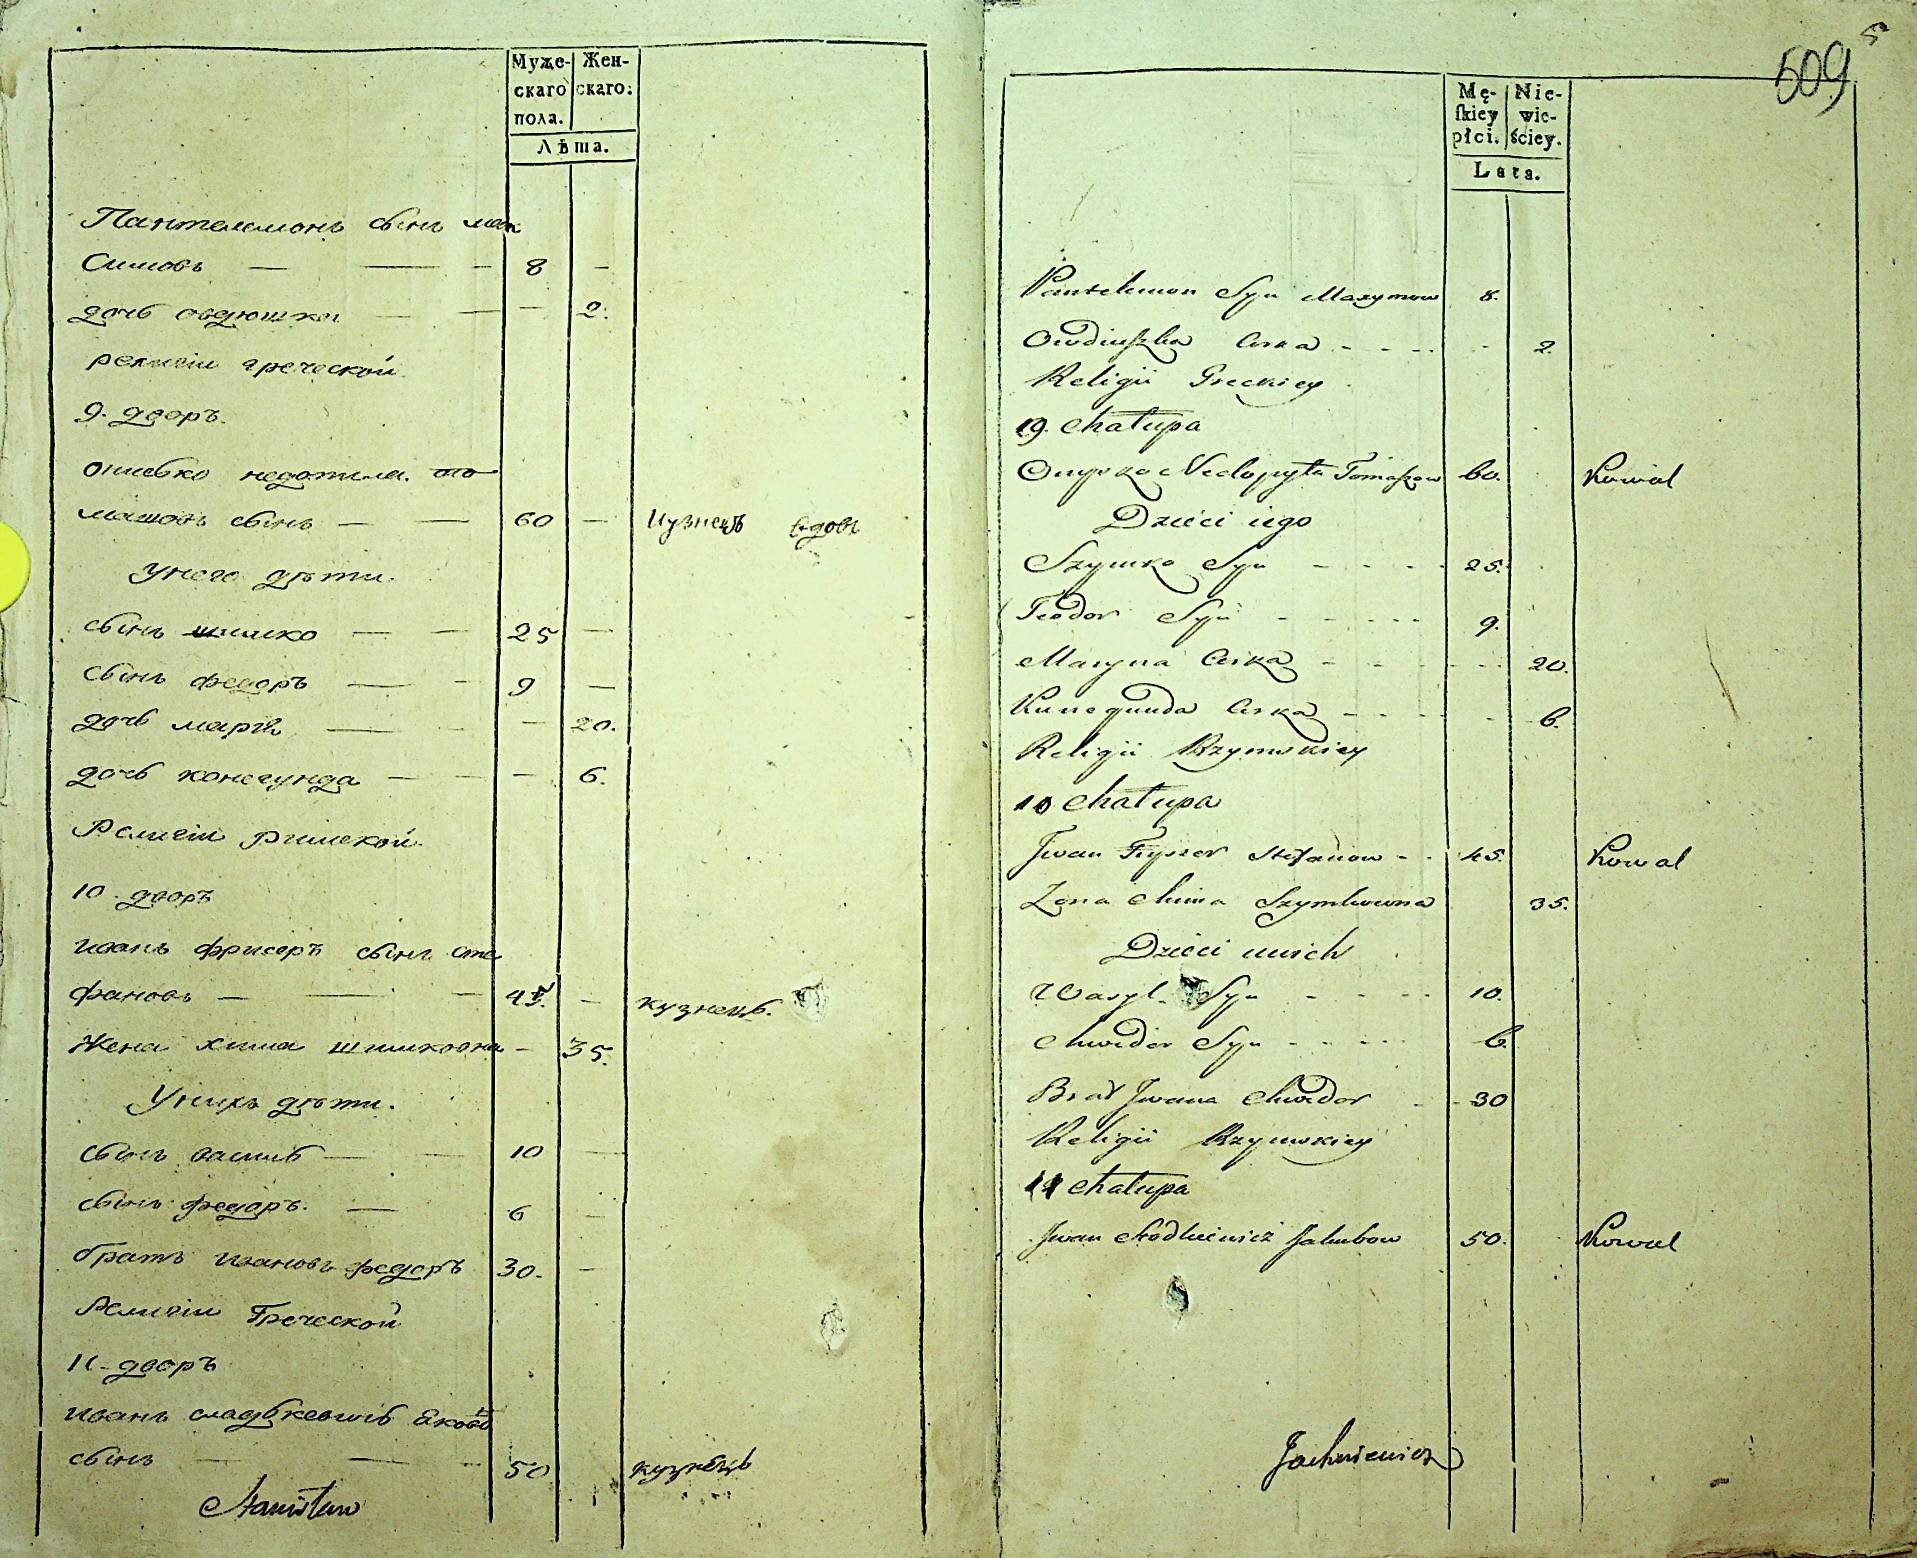 Муже-
скаго
пола.
Жен-
скаго.
Лѣта.
Пантелемонъ сынъ мак
симовъ — — — 8 —
дочь овдюшка — — — 2.
религiи греческой
9. дворъ.
онисько недопита. то
машовъ сынъ — — 60 — кузнецъ вдовъ
Унего дѣти.
сынъ шимко — — 25 —
сынъ федоръ — — 9 —
дочь марiя — — — 20.
дочь конегунда — — — 6.
Религiи Римской.
10. дворъ
иванъ фрисеръ сынъ сте
фановъ — — — 45. — кузнецъ.
Жена хима шимковна — 35.
Унихъ дѣти.
сынъ василь — — 10 —
сынъ федоръ. — 6 —
братъ ивановъ федоръ 30. —
Религiи Греческой
11. дворъ
иванъ сладкевичь Яковъ
сынъ — — — 50 кузнецъ
Stanisław
509
52
Mę-
skiey
płci.
Nie-
wie-
ściey.
Lata.
Pantelemon Syn Maxymow 8.
Owdiuszka Corka - - - - - 2.
Religii Greckiey
9. Chałupa
Onysko Nedopyta Tomaszow 60. Kowal
Dzieci iego
Szymko Syn - - - - 25.
Teodor Syn - - - - - 9.
Maryna Corka - - - - - 20.
Kunegunda Corka - - - - - 6.
Religii Rzymskiey
10 Chałupa
Jwan Fryszer Stefanow - - 45. Kowal
Zona Chima Szymkowna 35.
Dzieci unich
Wasyl Syn - - - - 10.
Chwedor Syn - - - - - 6.
Brat Jwana Chwedor - - 30
Religii Rzymskiey
11 Chałupa
Jwan Sładkiewicz Jakubow 50. Kowal
Jachniewicz